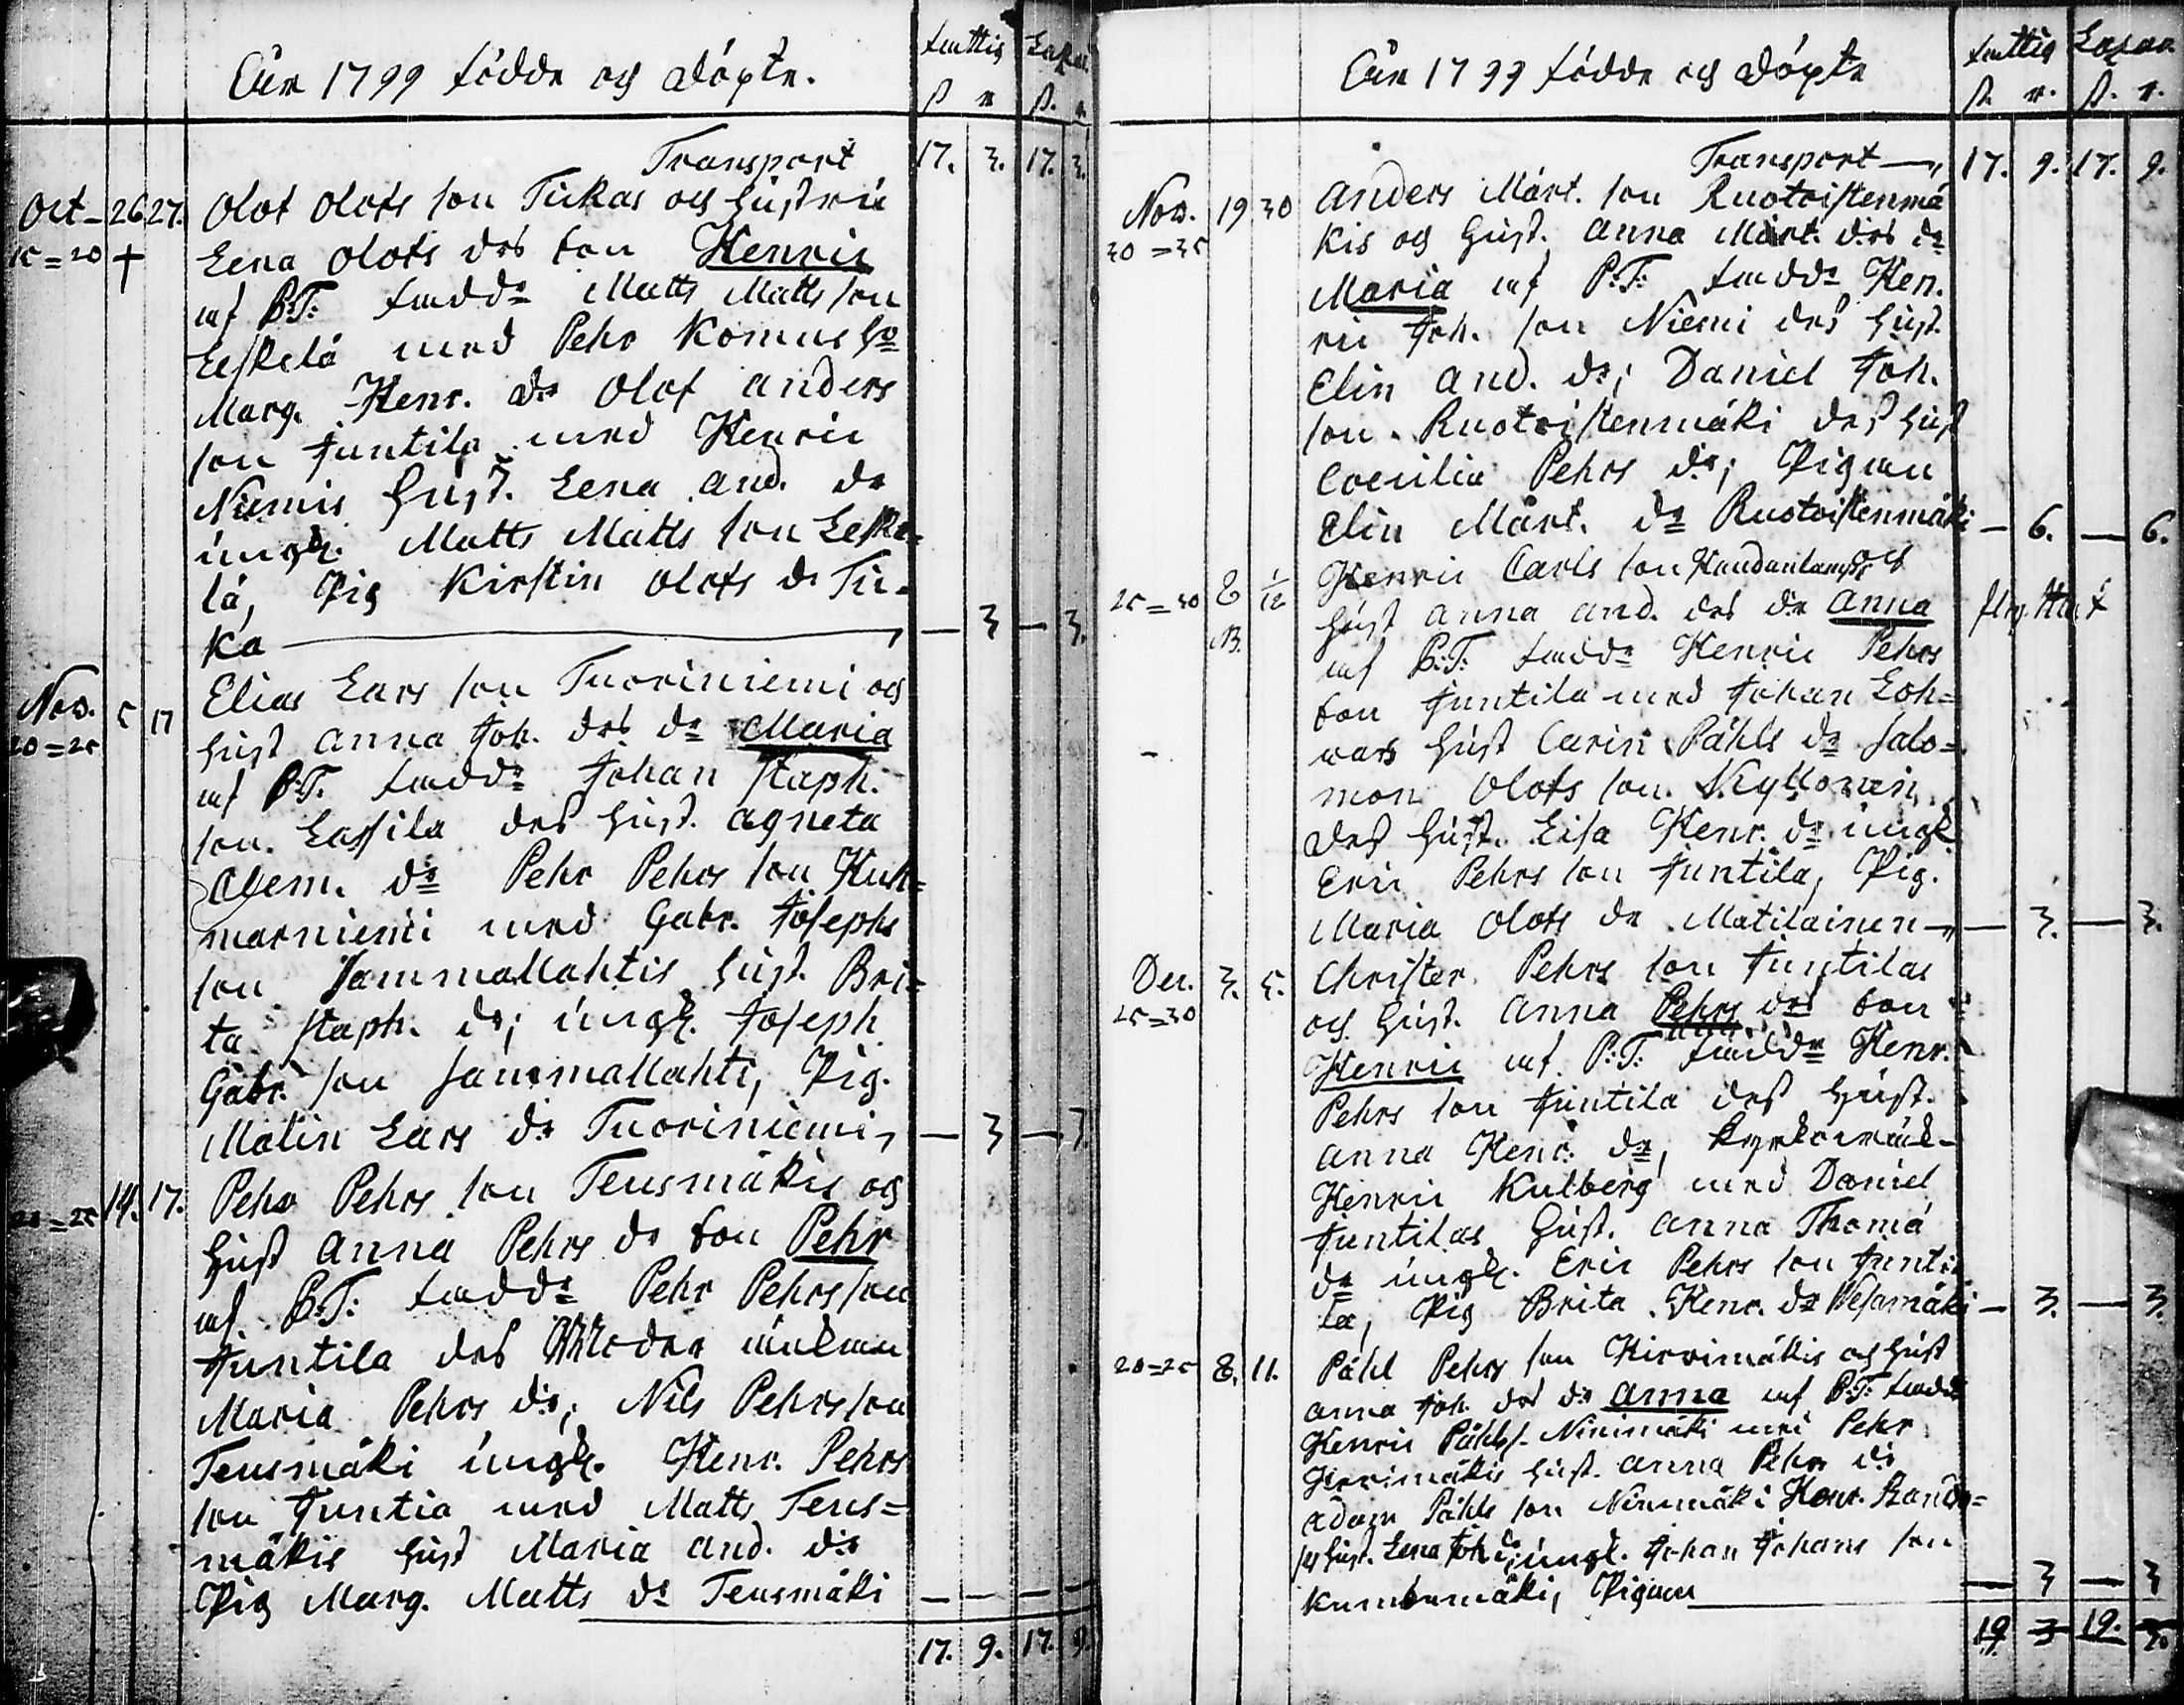 Åhr 1799 födde och döpte.
fattig Lazar.
ß r ß. r.
Transport 17. 3. 17. 3.
Oct 26 27. Olof Olofs son Tikas och hustru
15=20 † Lena Olofs drs son Henric
af B.T. fadd: Matts Matts son
Leskelä med Pehr Komus h:
Marg. Henr. dr Olof Anders
son Juntila med Henric
Niemis hust. Lena And. dr
ungk. Matts Matts son Leske-
lä, Pig Kirstin Olofs dr Ti-
ka — 3 — 3.
Nov. 5 17 Elias Lars son Tuoriniemi och
20=25 hust Anna Joh. drs dr Maria
af B.T. fadd: Johan Staph.
son Lassila des hust. Agneta
Clem. dr Pehr Pehrs son Kuh-
marniemi med Gabr. Josephs
son Sammallahtis hust. Bri-
ta Staph. dr; ungk. Joseph
Gabr. son Sammallahti, Pig.
Malin Lars dr Tuoriniemi, — 3 — 3.
20=25 14. 17. Pehr Pehrs son Teusmäkis och
hust Anna Pehrs dr son Pehr
af B.T. fadd: Pehr Pehrs son
Juntila des Moder
Maria Pehrs dr; Nils Pehrs son
Teusmäki ungk. Henr. Pehrs
son Juntia med Matts Teus-
mäkis hust Maria And. dr
Pig Marg. Matts dr Teusmäki — — — —
17. 9. 17. 9.
Åhr 1799 födde och döpte
fattig Lazar
ß. r. ß. r.
Transport — 17. 9. 17. 9.
Nov. 19 30 Anders Mårt. son Ruotoistenmä
30=35 kis och hust. Anna Mårt. drs dr
Maria af B.T. fadd: Hen.
ric Joh. son Niemi des hust.
Elin And. dr; Daniel Joh.
son Ruotoistenmäki des hust
Coecilia Pehrs dr; Pigan
Elin Mårt. dr Ruotoistenmäki — 6. — 6.
25=30 1/12 Henric Carls son och
hust Anna And. drs dr Anna
af B.T. fadd: Henric Pehrs
son Juntila med Johan Loh-
vars hust Carin Påhls dr Salo-
mon Olofs son Kyllönen
des hust. Lisa Henr. dr ungk
Eric Pehrs son Juntila, Pig.
Maria Olofs dr Matilainen — — 3. — 3.
Dec. 3. 5. Christer Pehrs son Juntilas
25=30 och hust. Anna Pehrs drs son
Henric af B.T. fadd: Henr.
Pehrs son Juntila des hust.
Anna Henr. dr,
Henric Kulberg med Daniel
Juntilas hust. Anna Thoma
dr ungk. Eric Pehrs son Junti
la, Pig Brita Henr. dr Wesamäki — 3. — 3.
20=25 8. 11. Påhl Pehrs son Hirvimäkis och hust
Anna Joh. drs dr Anna af B.T. fadd:
Henric Påhls s. Ninimäki med Pehr
Hirvimäkis hust. Anna Pehrs dr
Adam Påhls son Ninimäki Henr.
hust. Lena Joh. dr; ungk. Johan Johans son
Kumbumäki, Pigan — 3 — 3
19 3 19. 3.